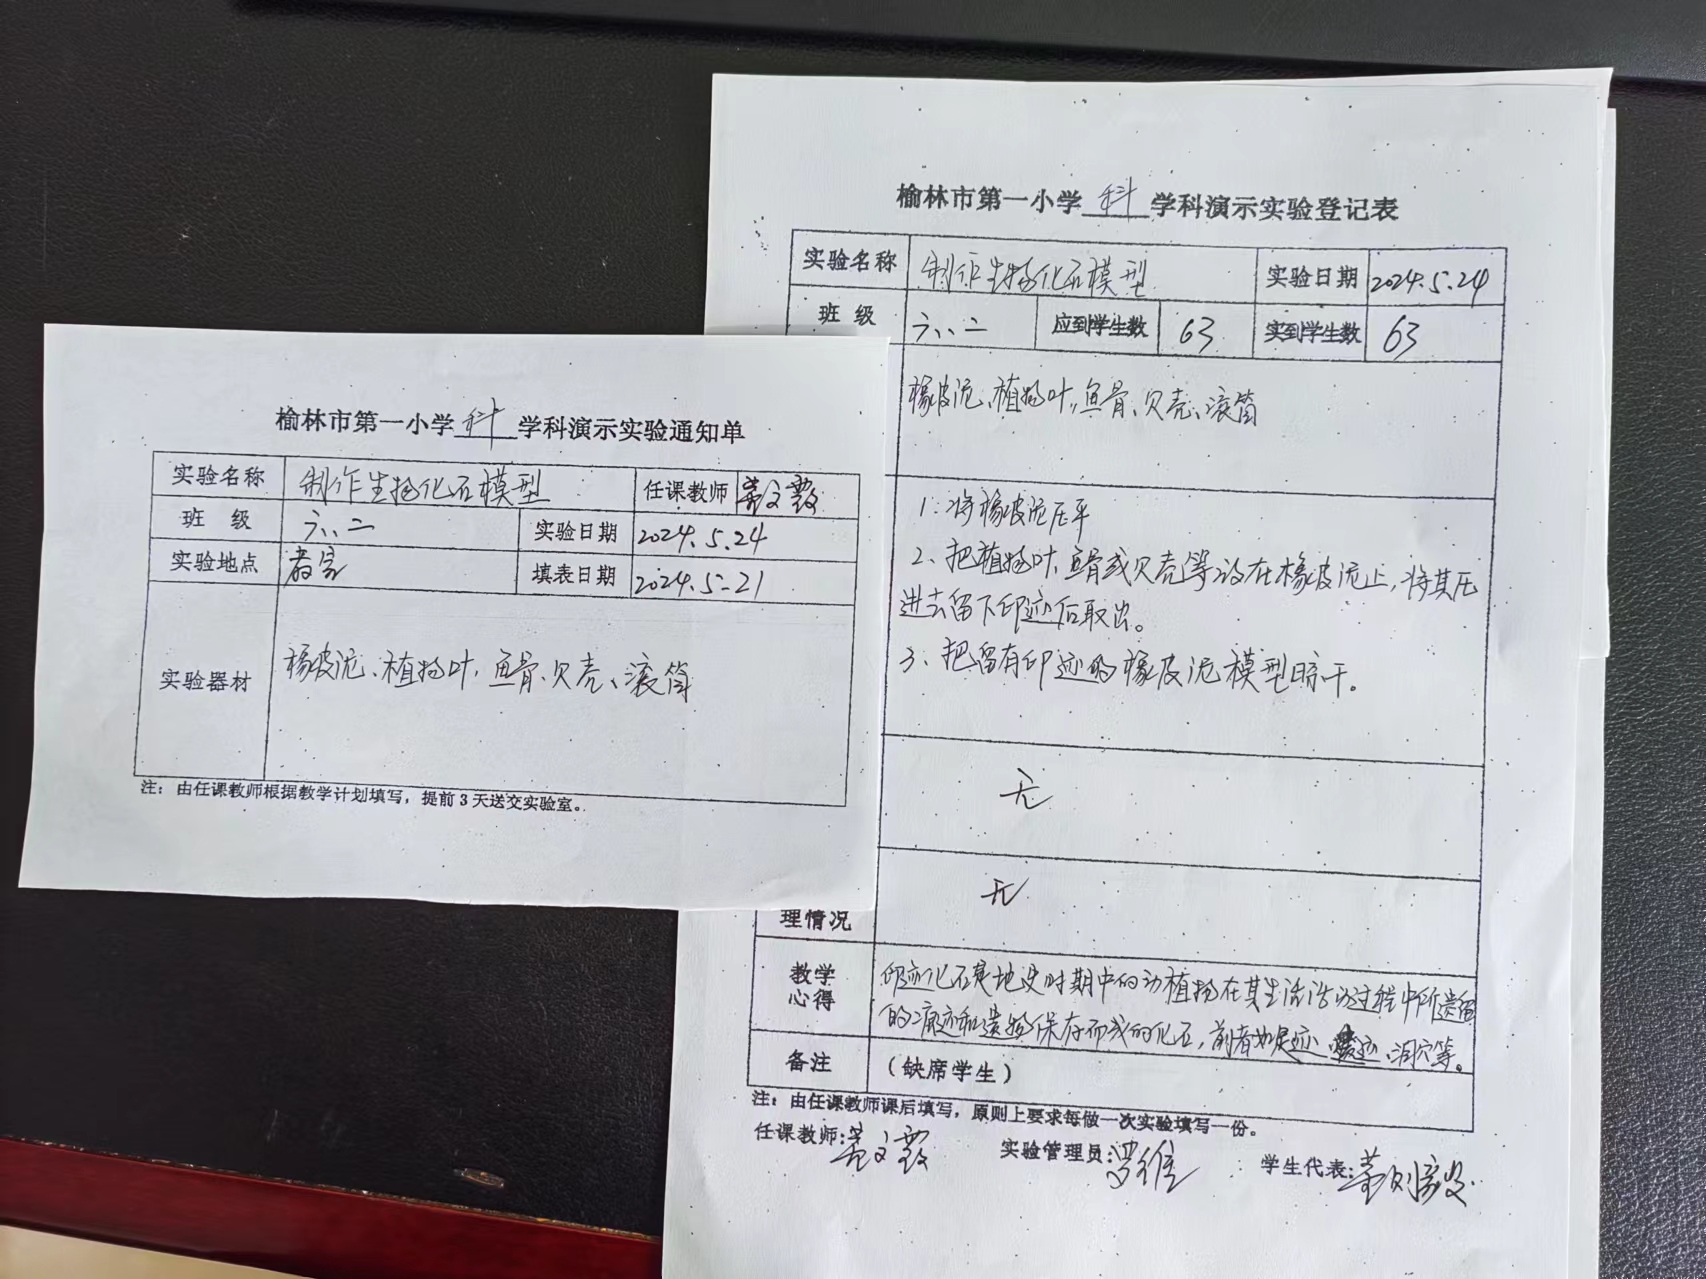 榆林市第一小学 科 学科演示实验通知单
实验名称 制作生物化石模型 任课教师
班 级 六、二 实验日期 2024.5.24
实验地点 教室 填表日期 2024.5.21
实验器材 橡皮泥、植物叶、鱼骨、贝壳、滚筒
注：由任课教师根据教学计划填写，提前3天送交实验室。
榆林市第一小学 科 学科演示实验登记表
实验名称 制作生物化石模型 实验日期 2024.5.24
班 级 六、二 应到学生数 63 实到学生数 63
橡皮泥、植物叶、鱼骨、贝壳、滚筒
1、将橡皮泥压平
2、把植物叶、鱼骨或贝壳等放在橡皮泥上，将其压
进去留下印迹后取出。
3、把留有印迹的橡皮泥模型晾干。
无
无
理情况
教学心得 印迹化石是地史时期中的动植物在其生活活动过程中所遗留
的痕迹和遗物保存而成的化石，前者如足迹、迹、洞穴等。
备注 （缺席学生）
注：由任课教师课后填写，原则上要求每做一次实验填写一份。
任课教师: 实验管理员:罗维 学生代表: